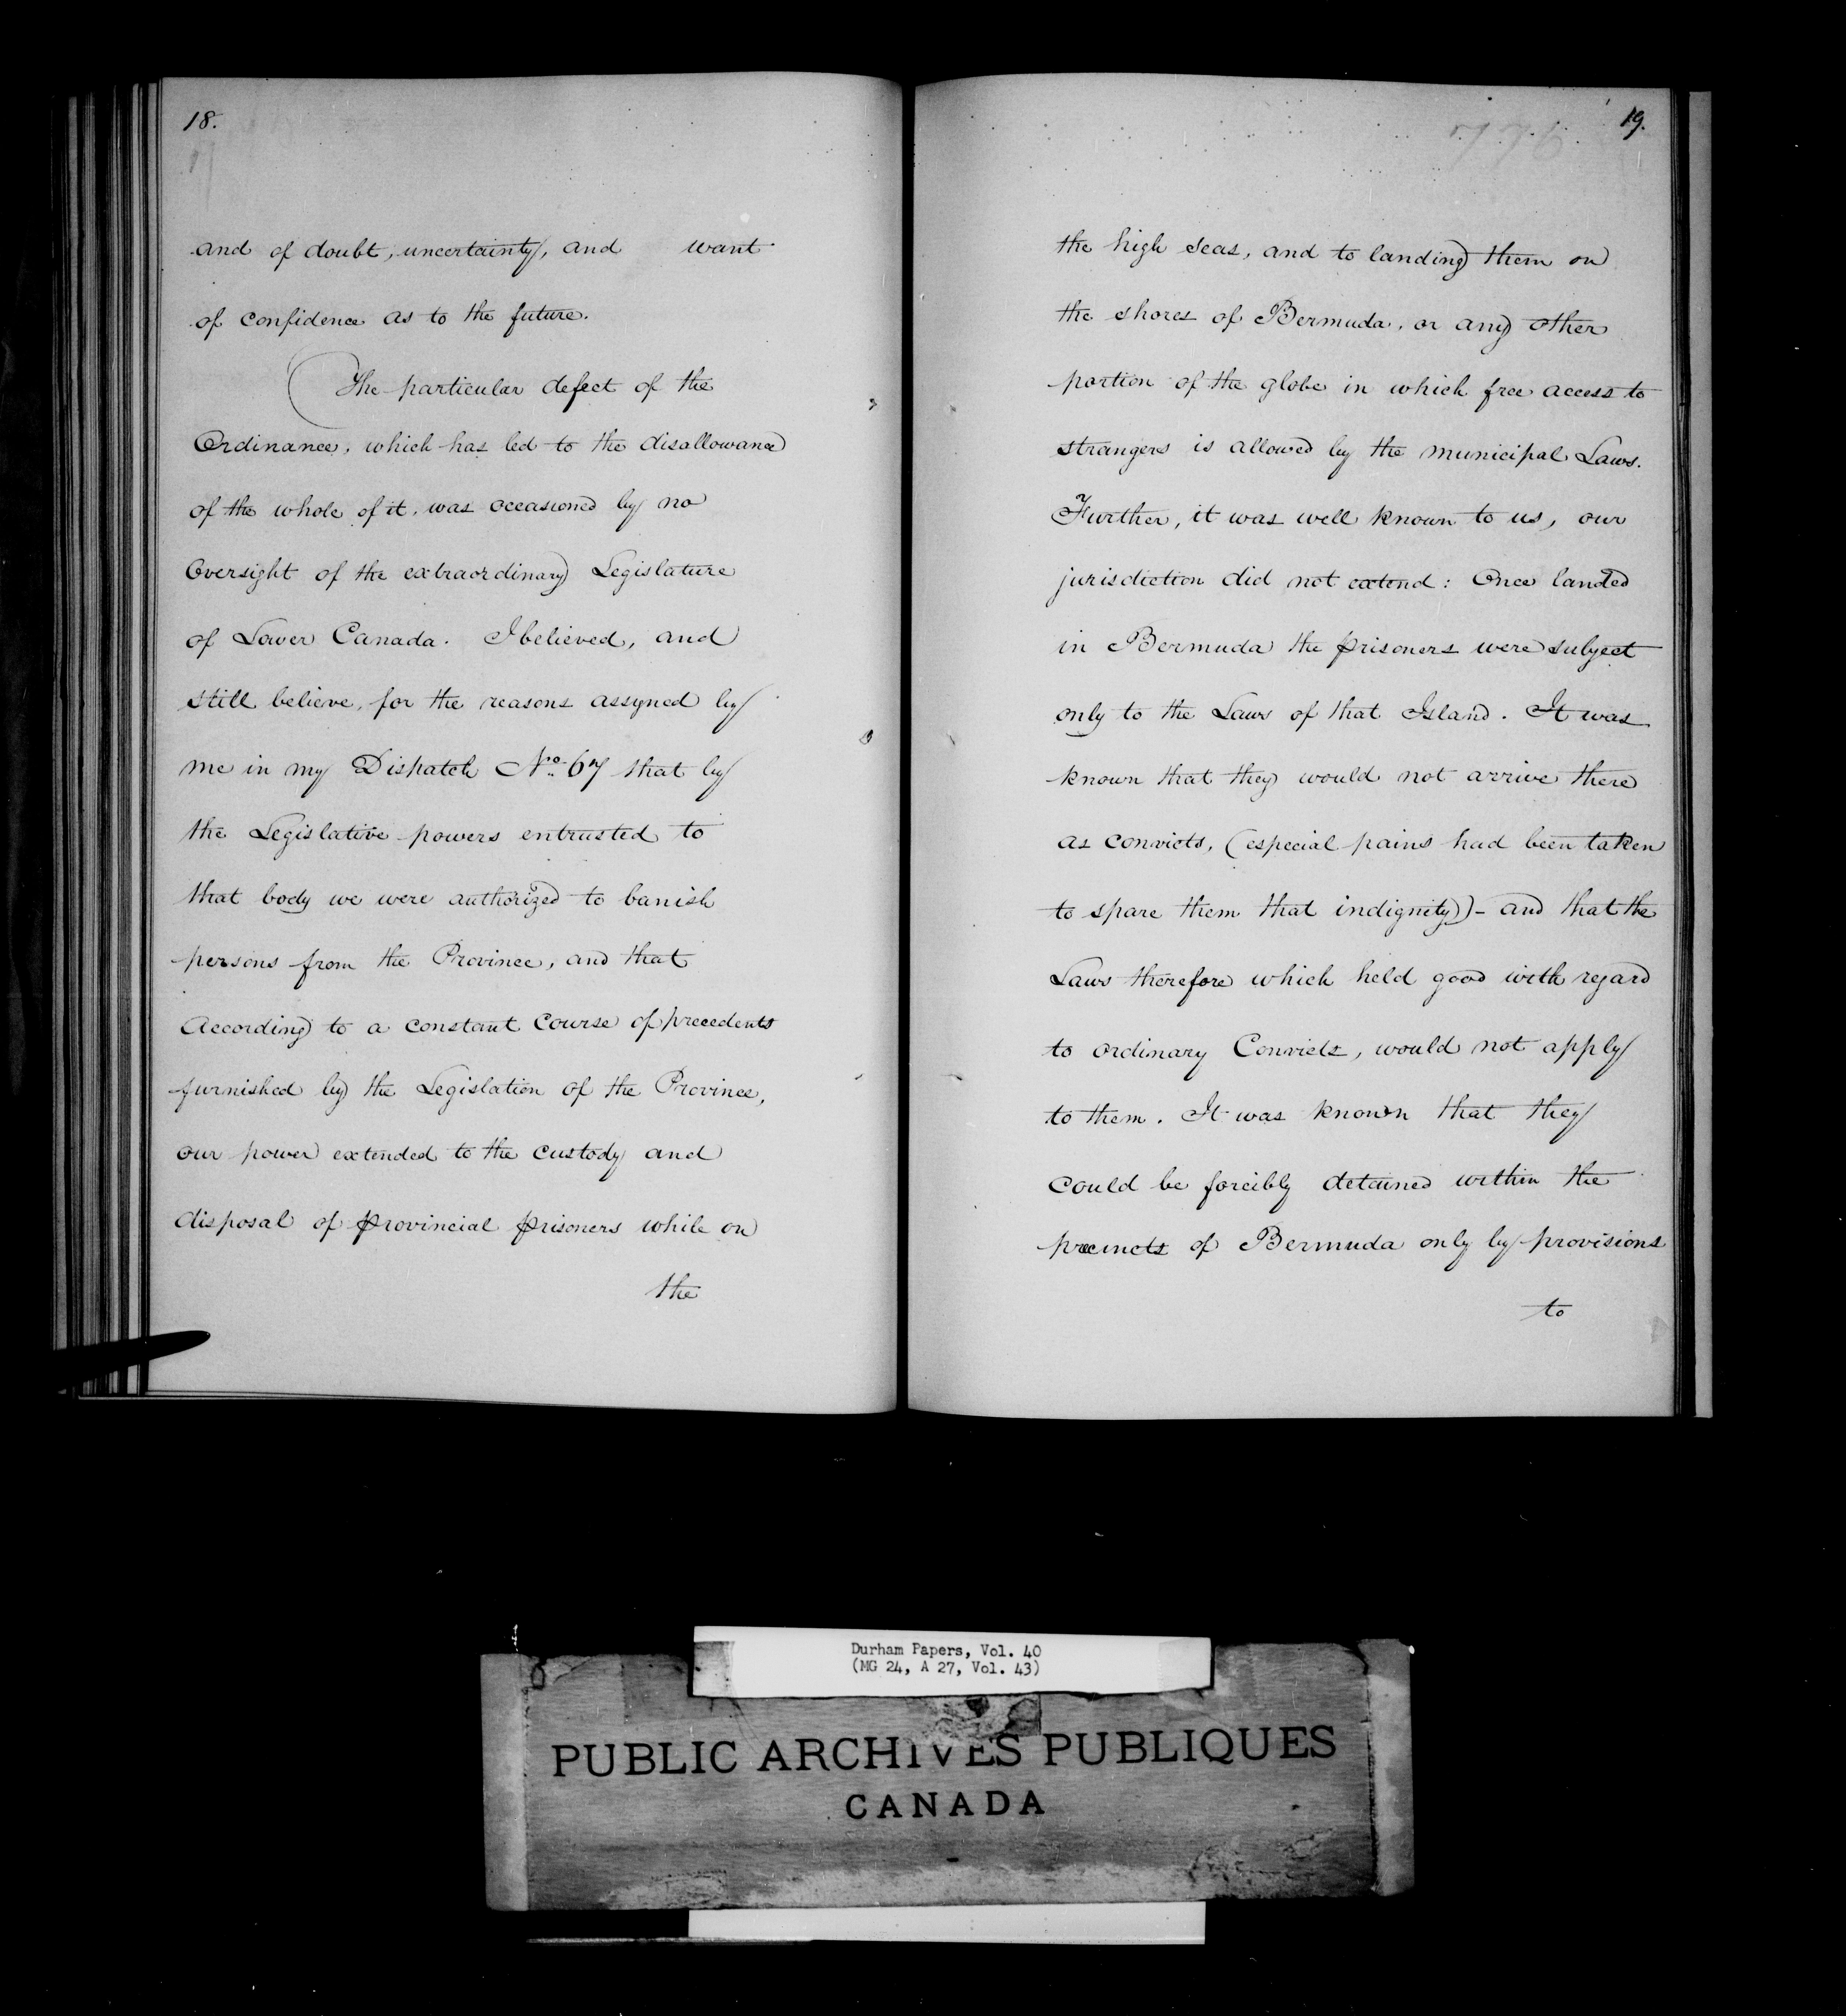 18.
and of doubt, uncertainty, and want
of confidence as to the future.
The particular defect of the
Ordinance, which has led to the disallowance
of the whole of it, was occasioned by no
Oversight of the extraordinary Legislature
of Lower Canada. I believed, and
still believe, for the reasons assigned by
me in my Dispatch No. 67 that by
the Legislative powers entrusted to
that body we were authorized to banish
persons from the Province, and that
According to a constant course of precedents
furnished by the Legislation of the Province,
our power extended to the custody and
disposal of provincial prisoners while on
the
19.
776
the high seas, and to landing them on
the shores of Bermuda, or any other
portion of the globe in which free access to
strangers is allowed by the municipal Laws.
Further, it was well known to us, our
jurisdiction did not extend: Once landed
in Bermuda the prisoners were subject
only to the Laws of that Island. It was
known that they would not arrive there
as convicts, (especial pains had been taken
to spare them that indignity)- and that the
Laws therefore which held good with regard
to ordinary Convicts, would not apply
to them. It was known that they
could be forcibly detained within the
precincts of Bermuda only by provisions
to
Durham Papers, Vol. 40
(MG 24, A 27, Vol. 43)
PUBLIC ARCHIVES PUBLIQUES
CANADA